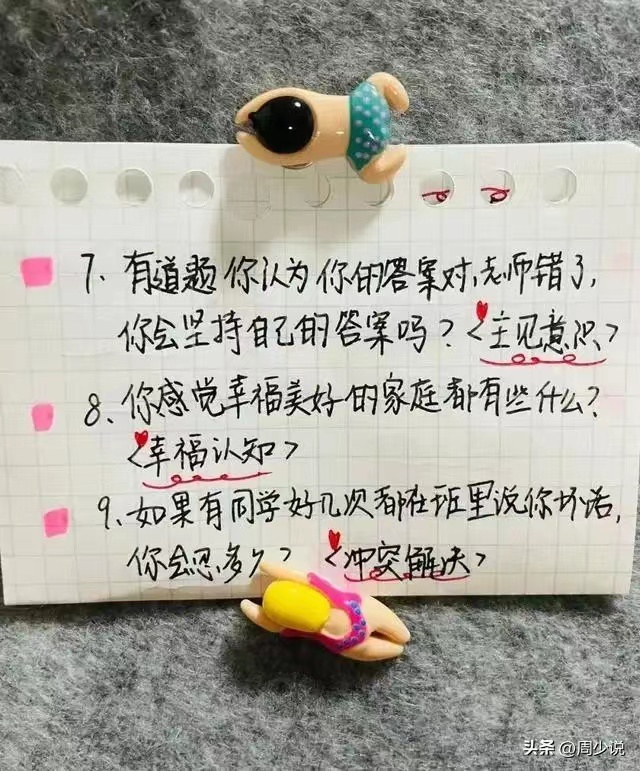 7、有道题你认为你的答案对,老师错了,
你会坚持自己的答案吗?<主见意识>
8、你感觉幸福美好的家庭都有些什么?
<幸福认知>
9、如果有同学好几次都在班里说你坏话,
你会忍多久? <冲突解决>
头条 @周少说